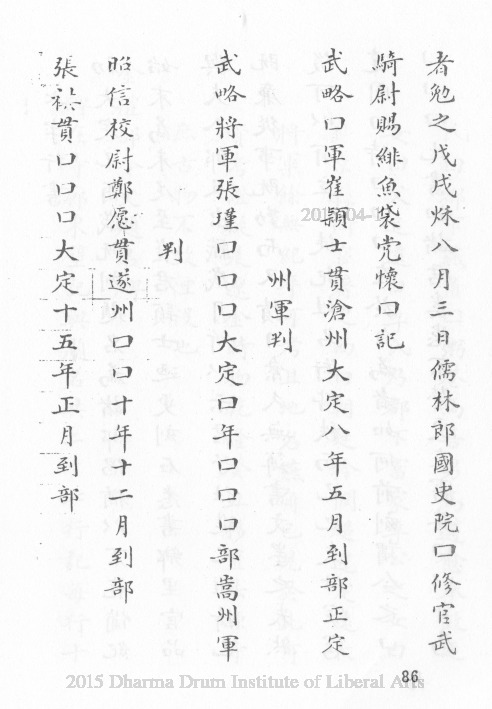 者勉之戊戌秌八月三日儒林郎國史院口修官武
騎尉賜緋魚袋党懷口記
武略口軍崔頴士貫滄州大定八年五月到部正定
州軍判
武略將軍張瑾口口口大定口年口口口部嵩州軍
判
昭信校尉鄭愿貫遂州口口十年十二月到部
張貫口口口大定十五年正月到部
86
2015 Dharma Drum Institute of Liberal Arts